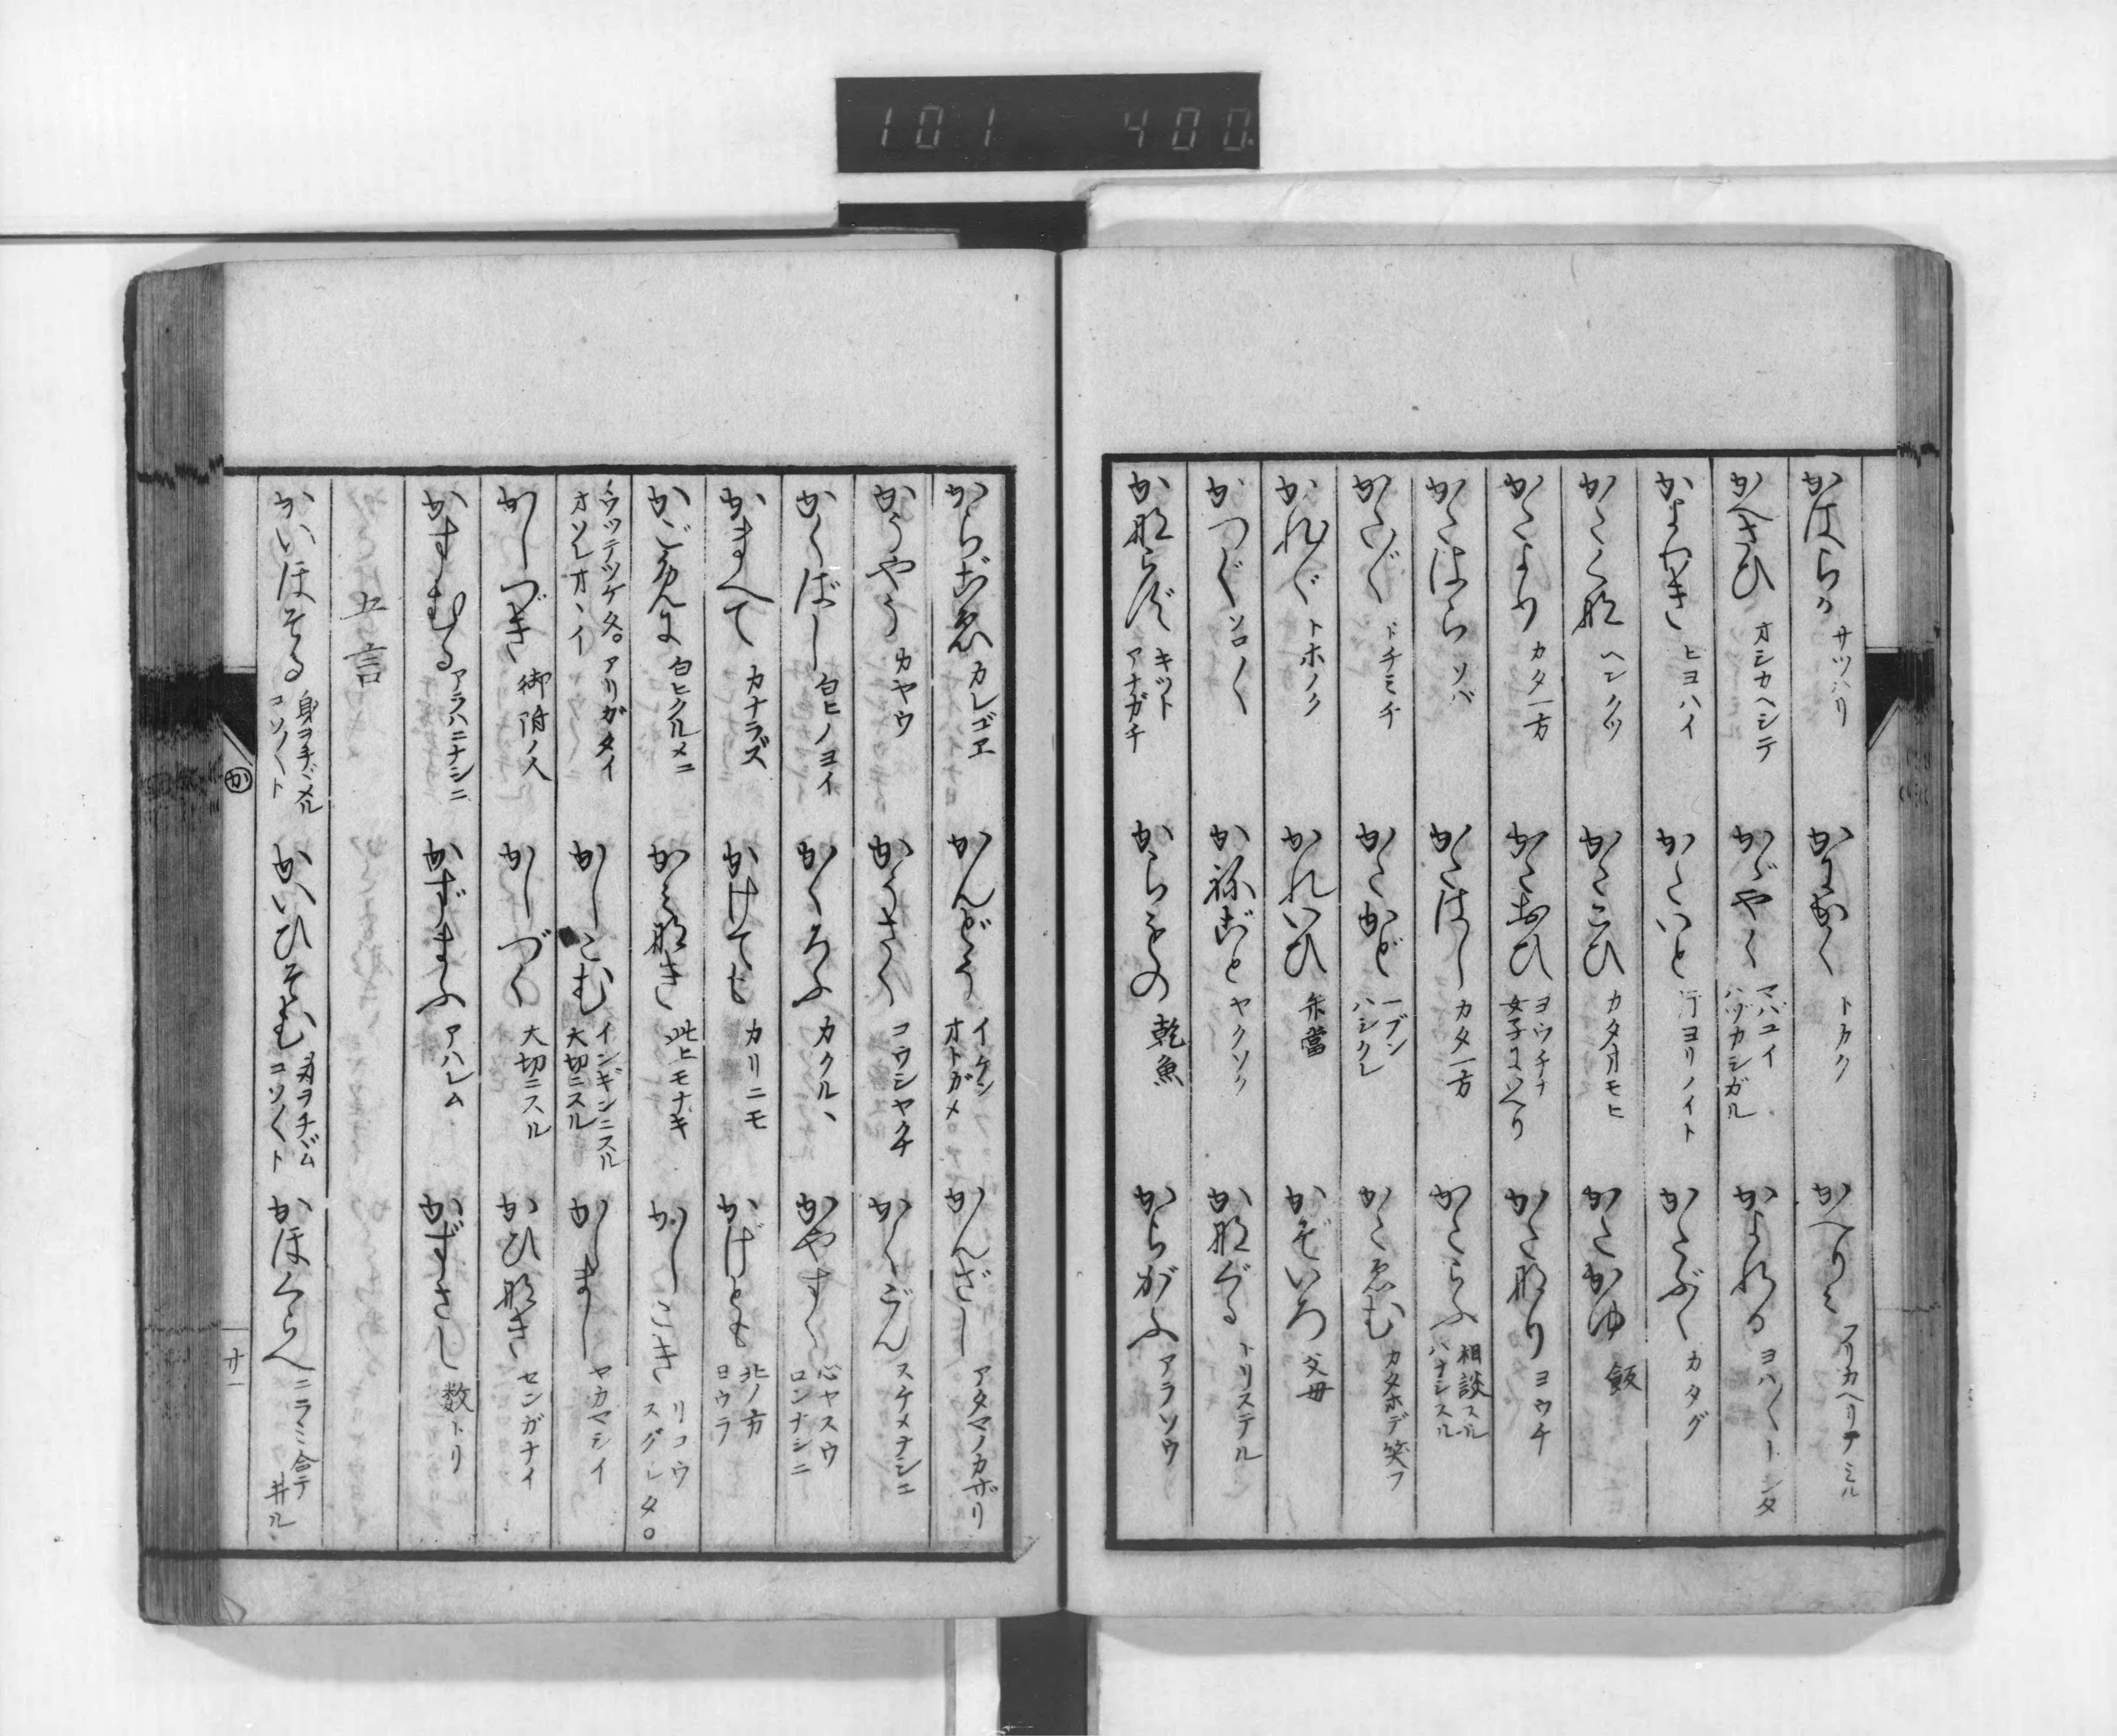 101 400
かはらか サツハリ
かにかく トカク
かへりミ フリカヘリテミル
かへさひ オシカヘシテ
かゞやく マバユイ ハヅカシガル
かよれる ヨハ〳〵トシタ
かよわき ヒヨハイ
かたいと 片ヨリノイト
かたぶく カタグ
かたく那 ヘンクツ
かたこひ カタ思モヒ
かたかゆ 飯
かたより カタ一方
かたおひ ヨウチナ 女子にいへり
かた那り ヨウチ
かたはら ソバ
かたはし カタ一方
かたらふ 相談スル ハナシスル
かたかど 一ブン ハシクレ
かたゑむ カタホデ笑フ
トホノク
かれいひ 弁當
かぞいろ 父母
かつ〴〵 ソロ〳〵
かねごと ヤクソク
か那ぐる トリステル
か那らず キット アナガチ
からもの 乾魚
からがふ アラソウ
からごゑ カレゴヱ
かんどう イケン オトガメ
かんざし アタマノカザリ
かうやう カヤウ
かうさく コウシヤクチ
かくごん スケメナシニ
かくばし 匂ヒノヨイ
かくろふ カクルヽ
かやすく 心ヤスウ ロンナシニ
かまへて カナラズ
かけても カリニモ
かげとも 北ノ方 日ウラ
かごめに 匂ヒクルメニ
かミ那き 此ヒモナキ
かしこき リコウ スグレタ。
ウツテツケタ。アリガタイ オソレオヽイ
かしこむ インギンニスル 大切ニスル
かしまし ヤカマシイ
かしづき 御附ノ人
かしづく 大切ニスル
かひ那き センガナイ
かすむる アラハニナシニ
かずまふ アハレム
かずさし 数トリ
五言
かいほそる 身ヲチヾメル コソ〳〵ト
かいひそむ 身ヲチヾム コソ〳〵ト
かほくらべ ニラミ合テ 井ル
か
廿一